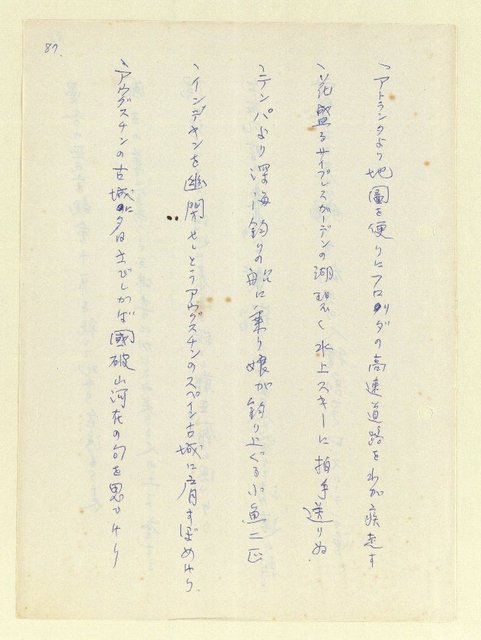 87.
、アトランタより地圖を便りにフロリダの高速道路をわが疾走す
、花盛るサイプレスガーデンの湖碧く水上スキーに拍手送りぬ
、テンパより深海釣りの船に乗り娘が釣り上ぐる小魚二匹
、インデヤンを幽閉せしとうアウグスチンのスペイン古城に肩すぼめけり
、アウグスチンの古城に夕日さびしかば國破山河在の句を思ひけり